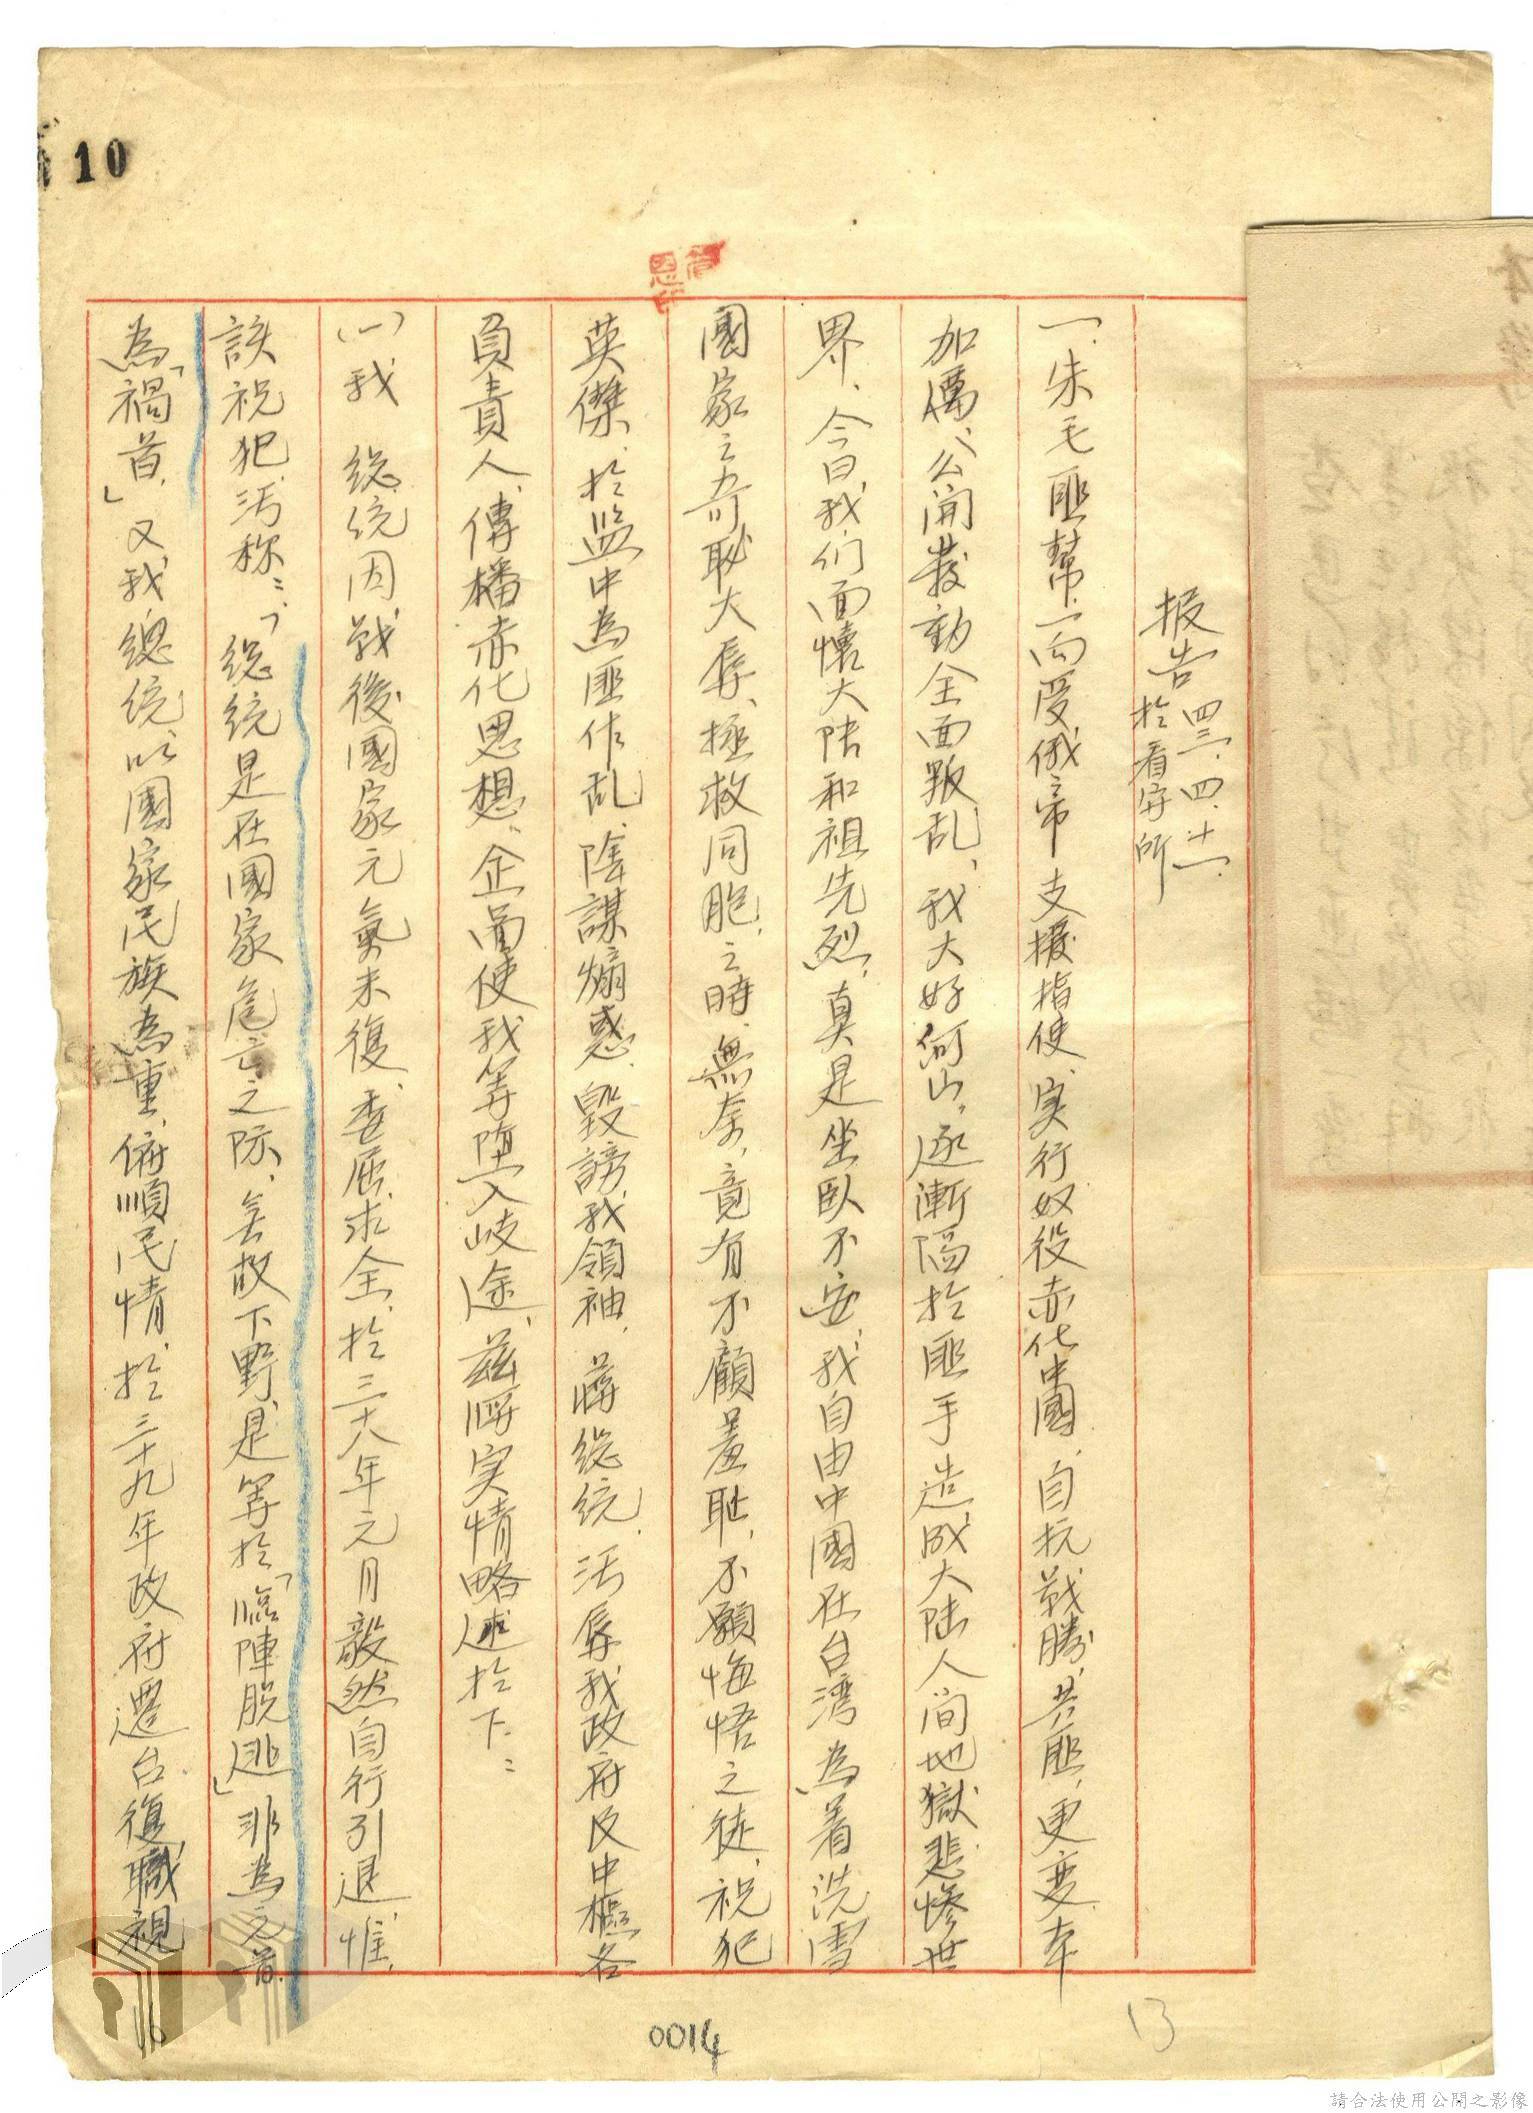 10
报告 四三、四、十一、
於看守所
一、朱毛匪幫、一向受俄帝支援指使、実行奴役赤化中國、自抗戰勝、共匪、更变本
加厲、公開發動全面叛乱、我大好河山、逐漸隔於匪手造成大陆人间地獄悲慘世
界、今日、我们面懷大陆和祖先烈、真是坐臥不安、我自由中國在台湾為着洗雪
國家之奇恥大辱、拯救同胞、之時、無奈、竟有不顧羞耻、不願悔悟之徒、祝犯
英傑、於监中為匪作乱、陰謀煽惑、毀謗我領袖、蔣總統、污辱我政府及中樞各
負責人、傳播赤化思想、企啚使我等墮入岐途、兹將実情略述於下：
(一)我 總統因戰後國家元氣未復、委屈求全、於三十八年元月毅然自行引退、惟、
該祝犯、污称：「總統是在國家危亡之际、無故下野、是等於「臨陣脫逃」非為元首、
為「禍首、」又、我總統、以國家民族為重、俯順民情、於三十九年政府遷台復職、視
0014
13
請合法使用公開之影像